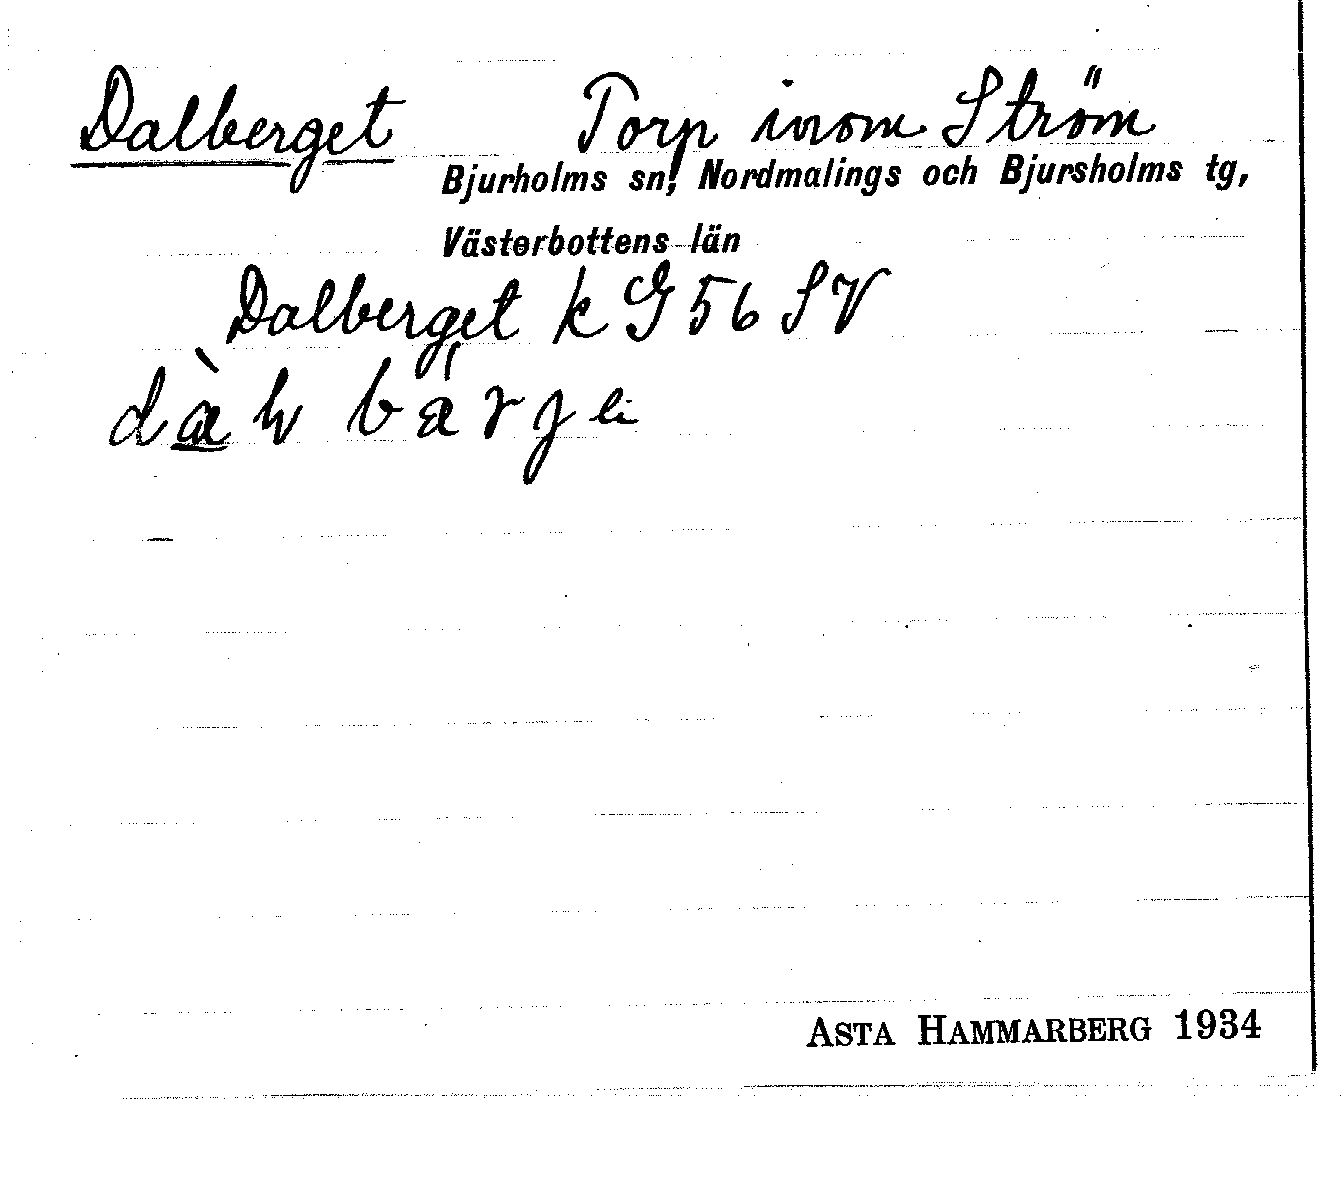 Dalberget Torp inom Ström
Bjurholms sn, Nordmalings och Bjursholms tg,
Västerbottens län
Dalberget k G 56 S V
ASTA HAMMARBERG 1934